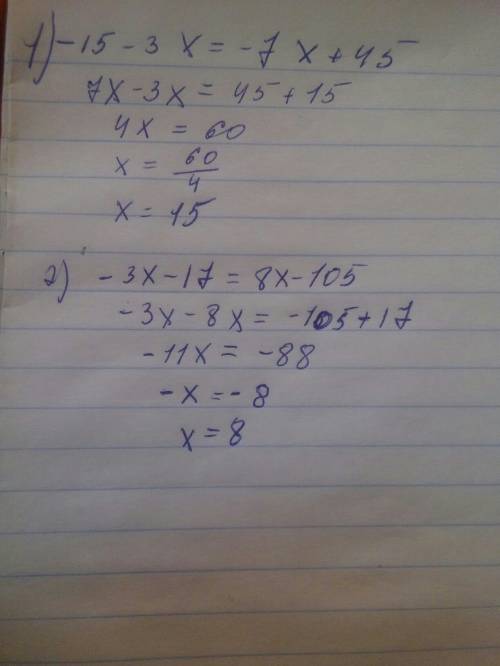 1) -15 - 3 x = -7 x + 45
7x - 3x = 45 + 15
4x = 60
x = 60/4
x = 15
2) - 3x - 17 = 8x - 105
- 3x - 8x = -105 + 17
- 11x = -88
- x = - 8
x = 8